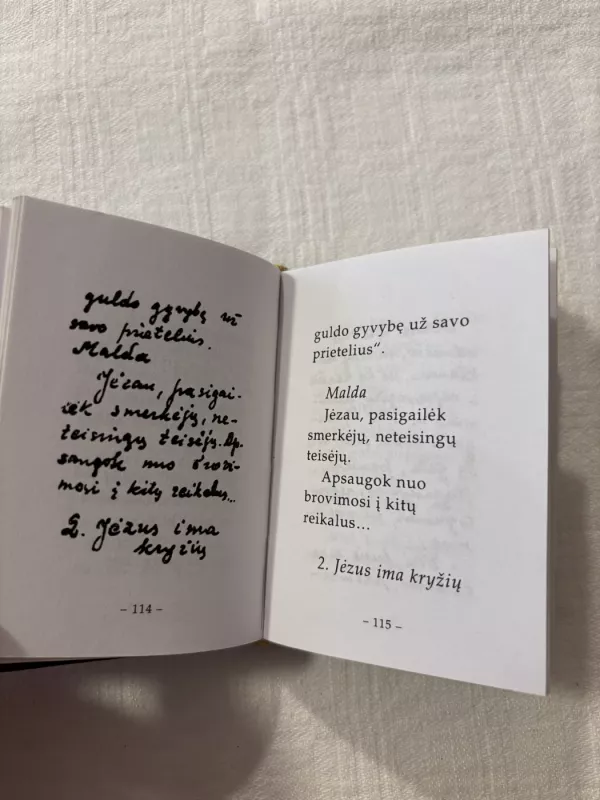 guldo gyvybę už
savo prietelius.
Malda
Jėzau, pasigai-
lėk smerkėjų, ne-
teisingų teisėjų. Ap-
saugok nuo brovi-
mosi į kitų reikalus...
2. Jėzus ima
kryžių
– 114 –
guldo gyvybę už savo
prietelius“.
Malda
Jėzau, pasigailėk
smerkėjų, neteisingų
teisėjų.
Apsaugok nuo
brovimosi į kitų
reikalus...
2. Jėzus ima kryžių
– 115 –